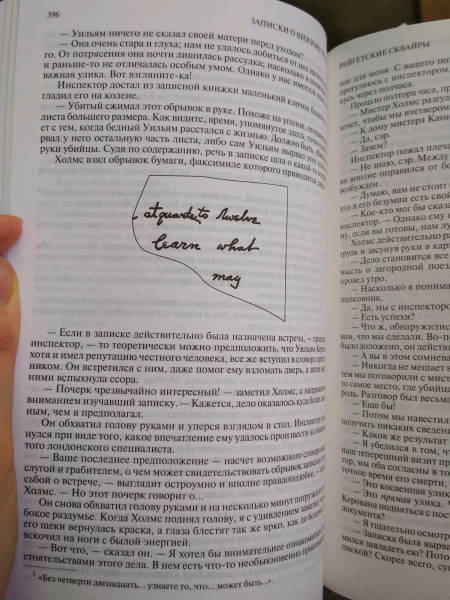 596
ЗАПИСКИ О ШЕРЛОКЕ
— Уильям ничего не сказал своей матери перед уходом?
— Она очень стара и глуха; нам не удалось добиться от нее
От потрясения она почти лишилась рассудка; насколько я
и раньше-то не отличалась особым умом. Однако у нас имеется
важная улика. Вот взгляните-ка!
Инспектор достал из записной книжки маленький клочок бумаги
гладил его на колене.
— Убитый сжимал этот обрывок в руке. Похоже на уголок,
листа большего размера. Как видите, время, упомянутое здесь,
ет с тем, когда бедный Уильям расстался с жизнью. Должно быть,
рвал у него остальную часть листа, либо сам Уильям вырвал этот
руки убийцы. Судя по содержанию, речь в записке шла о
Холмс взял обрывок бумаги, факсимиле которого приводится
at quarter to twelve
learn what
may
— Если в записке действительно была назначена встреча, —
инспектор, — то теоретически можно предположить, что Уильям
хотя и имел репутацию честного человека, все же вступил в сговор с
ником. Он встретился с ним, даже помог ему взломать дверь, а затем
ними вспыхнула ссора.
— Почерк чрезвычайно интересный! — заметил Холмс, с
вниманием изучавший записку. — Кажется, дело оказалось куда более
ным, чем я предполагал.
Он обхватил голову руками и уперся взглядом в стол. Инспектор
нулся при виде того, какое впечатление ему удалось произвести на
того лондонского специалиста.
— Ваше последнее предположение — насчет возможного сговора
слугой и грабителем, о чем может свидетельствовать обрывок записки с
сьбой о встрече, — выглядит остроумно и вполне правдоподобно, —
Холмс. — Но этот почерк говорит о...
Он снова обхватил голову руками и на несколько минут погрузился
бокое раздумье. Когда Холмс поднял голову, я с удивлением заметил,
его щеки вернулась краска, а глаза блестят так же ярко, как до
вскочил на ноги с былой энергией.
— Вот что, — сказал он. — Я хотел бы внимательнее ознакомиться
стоятельствами этого дела. В нем есть что-то необыкновенно
¹ «Без четверти двенадцать... узнаете то, что... может быть...».
РЕЙГЕТСКИЕ СКВАЙРЫ
ное для меня. С вашего
прогуляюсь с инспектором
пусть через полчаса.
Прошло полтора часа,
— Мистер Холмс
хочет, чтобы мы вчетвером
— К дому мистера
— Да, сэр.
— Зачем?
Инспектор пожал
— Не знаю, сэр. Между
не вполне оправился от
возбужден.
— Думаю, вам не стоит
что в его безумии есть
— Кое-кто мог бы
инспектор. — Однако ему
ну, если вы готовы, нам
Холмс действительно
грудь и засунув руки в
— Дело становится все
мысль о загородной
провел утро.
— Насколько я
полковник.
— Да, мы с инспектором
— Есть успехи?
— Что ж, обнаружились
вам, что мы сделали.
было доложено, он
— А вы в этом
— Никогда не мешает
мы поговорили с
то самое место, где
род. Разговор был
— Еще бы!
— Потом мы навестили
никаких сведений
— Каков же результат
— Я убедился в том,
наш теперешний визит
тор, мы оба согласны в
время, в которое
— Это косвенная улика
— Это прямая улика.
Керована подняться с
документа?
— Я тщательно
— Записка была
мился завладеть ею?
пиской? Скорее всего,